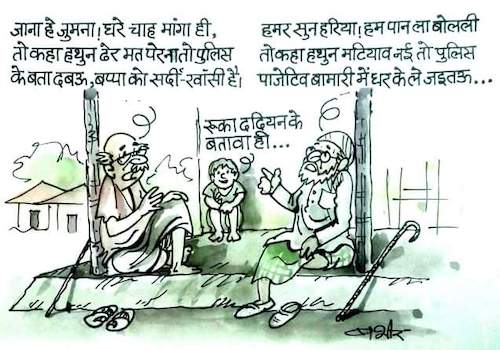 जाना हे जुमना! घरे चाह मांगा ही,
तो कहा हथुन ढेर मत पेरना तो पुलिस
के बता दबऊ, बप्पा को सर्दी-खांसी है।
हमर सुन हरिया! हम पान ला बोलली
तो कहा हथुन मटियाव नई तो पुलिस
पाजेटिव बामारी में धर के ले जइतऊ...
रूका ददियन के
बतावा ही...